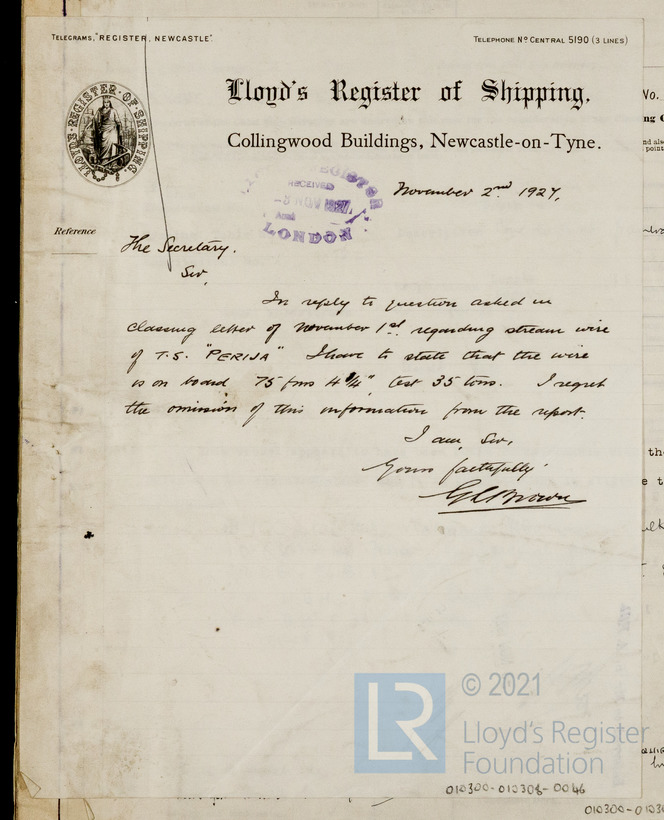 TELEGRAMS, "REGISTER, NEWCASTLE".
TELEPHONE No CENTRAL 5190 (3 LINES)
LLOYD'S REGISTER OF SHIPPING.
Lloyd's Register of Shipping,
Collingwood Buildings, Newcastle-on-Tyne.
RECEIVED
NOV 1927
LONDON
November 2nd 1927,
Reference
The Secretary.
Sir,
In reply to question asked in
classing letter of November 1st regarding stream wire
of T.S. "PERIJA" I have to state that the wire
is on board 75 fms 4 1/4", test 35 tons. I regret
the omission of this information from the report.
I am, Sir,
Yours faithfully
G L Brown
© 2021
LR
Lloyd's Register
Foundation
010300-010308-0046